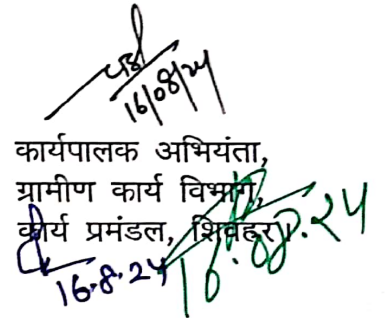 16/08/24
कार्यपालक अभियंता,
ग्रामीण कार्य विभाग,
कार्य प्रमंडल, शिवहर।
16.8.24
16.08.24